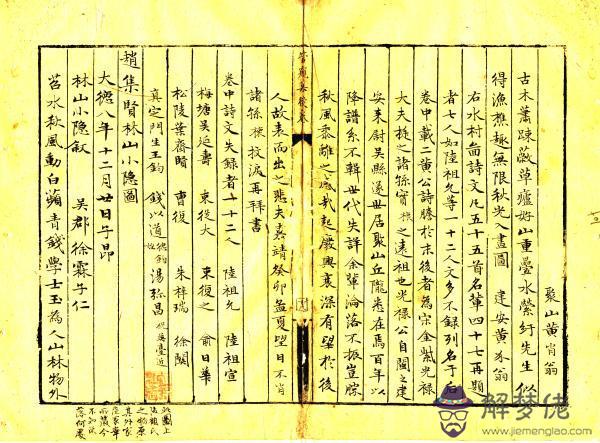 聚山黃肖翁
古木蕭踈蔽草廬好山重疊水縈紆先生似
得漁樵趣無限秋光入畫圖 建安黃翁
右水村啚詩文凡五十五首名筆四十七再題
者七人如陸祖允等一十二人文多不録列名于右
卷中載二黃公詩牓於末後者為宗金紫光祿
大夫挺之諸孫實榱之遠祖也光祿公自閩之建
安來尉吳縣遂世居聚山丘隴悉在焉百年以
降譜系不輯世代失詳余輩淪落不振豈勝
秋風黍離之感哉起廢興衰深有望於後
人故表而出之悲夫嘉靖癸卯孟夏望日不肖
諸孫榱抆淚再拜書
卷中詩文失録者一十二人 陸祖允 陸祖宣
梅塘吳延壽 束從大 束復之 俞日華
松陵葉齋賢 曹復 朱梓瑞 徐関
真定門生王鈞 錢以道 湯彌昌
趙集賢林山小隱圖
大德八年十二月廿日子昂
林山小隱叙 吳郡徐霖子仁
苕水秋風動白蘋青錢學士玉為人山林物外
解梦佬
www.jiemenglao.com